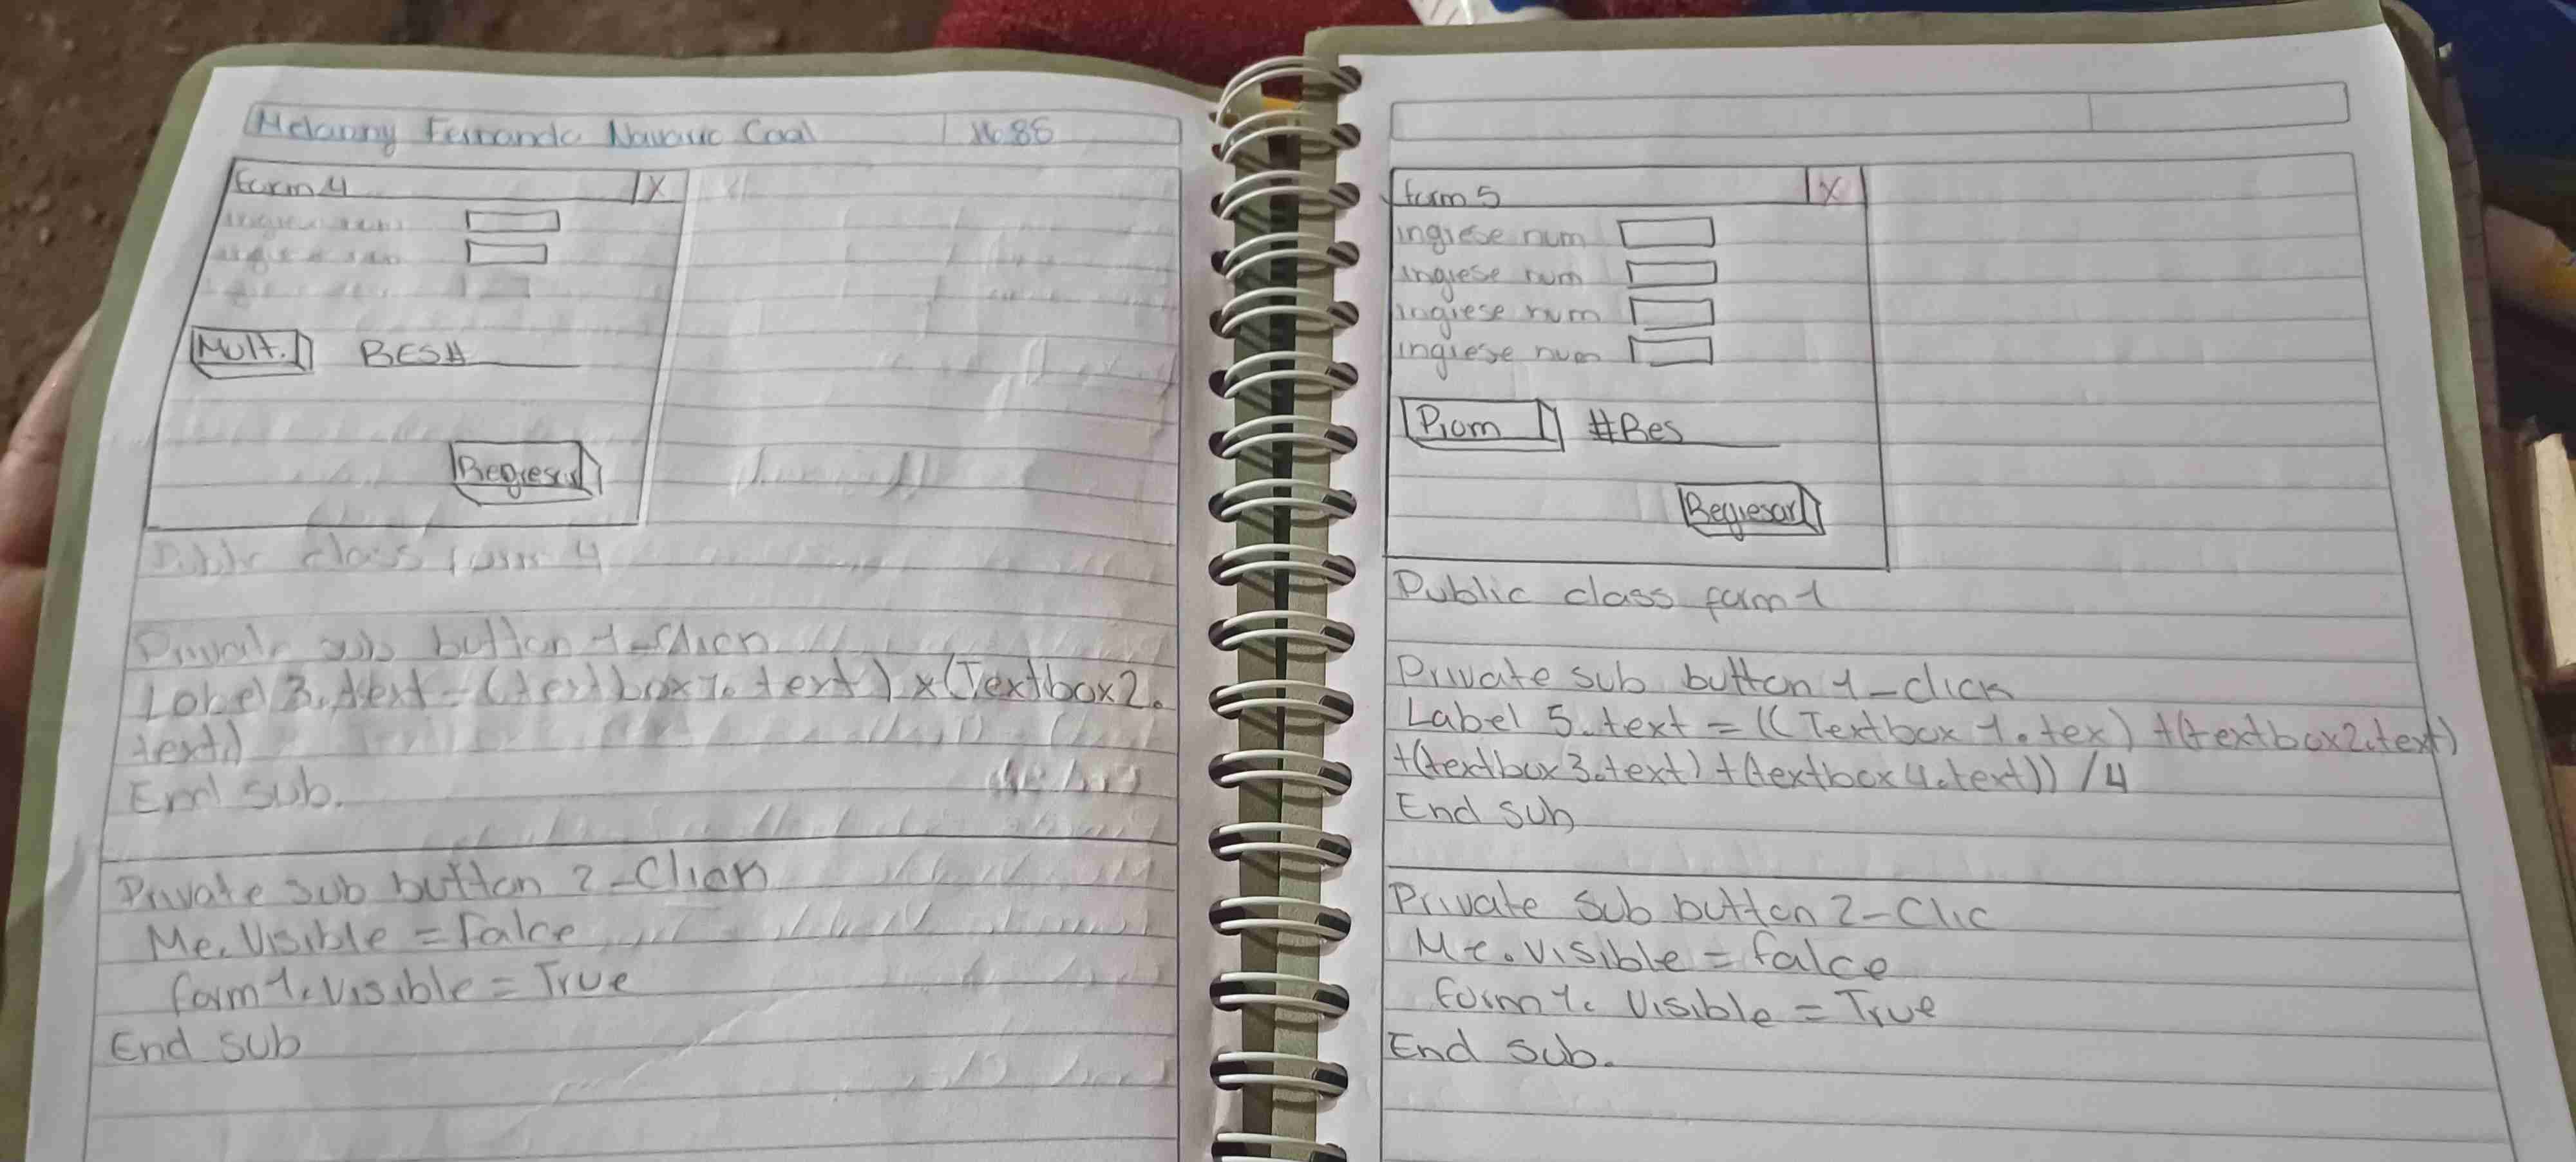 Melanny Fernanda Navarro Caal
form 4 X
ingrese num
ingrese num
Mult. RES#
Regresar
Public class form 4
Private sub button 1-Click
Label 3.text = (textbox 1. text) x (Textbox2.
text)
End sub.
Private sub button 2-Click
Me.Visible = falce
form 1. Visible = True
End sub
form 5 X
ingrese num
ingrese num
ingrese num
ingrese num
Prom #Res
Regresar
Public class form 1
Private sub button 1-click
Label 5.text = ((Textbox 1. tex) +(textbox2.text)
+(textbox3.text) +(textbox4.text)) /4
End sub
Private sub button 2-Clic
Me.visible = falce
form 1. Visible = True
End sub.